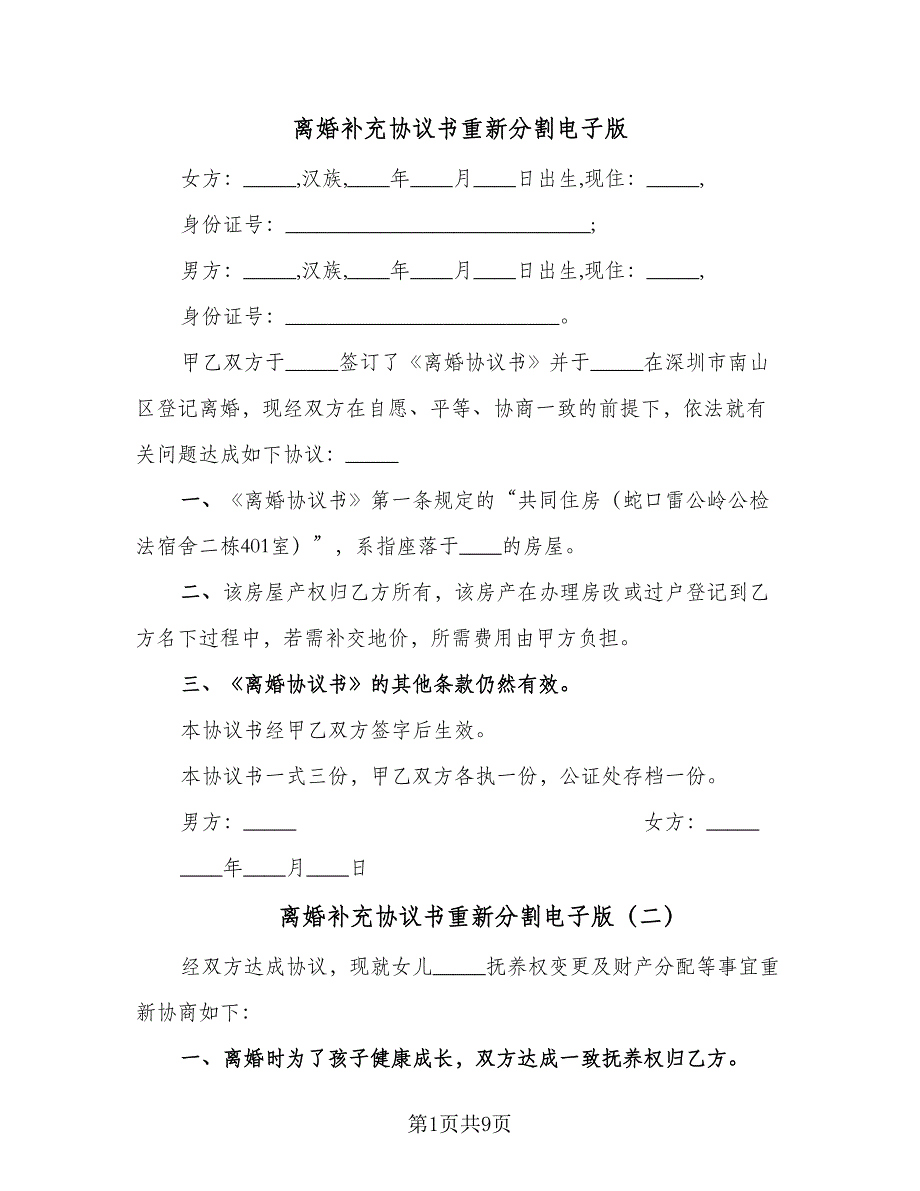 离婚补充协议书重新分割电子版
女方：_____,汉族,____年____月____日出生,现住：_____,
身份证号：_____________________________;
男方：_____,汉族,____年____月____日出生,现住：_____,
身份证号：__________________________。
甲乙双方于_____签订了《离婚协议书》并于_____在深圳市南山
区登记离婚，现经双方在自愿、平等、协商一致的前提下，依法就有
关问题达成如下协议：_____
一、《离婚协议书》第一条规定的“共同住房（蛇口雷公岭公检
法宿舍二栋401室）”，系指座落于____的房屋。
二、该房屋产权归乙方所有，该房产在办理房改或过户登记到乙
方名下过程中，若需补交地价，所需费用由甲方负担。
三、《离婚协议书》的其他条款仍然有效。
本协议书经甲乙双方签字后生效。
本协议书一式三份，甲乙双方各执一份，公证处存档一份。
男方：_____ 女方：_____
____年____月____日
离婚补充协议书重新分割电子版（二）
经双方达成协议，现就女儿_____抚养权变更及财产分配等事宜重
新协商如下：
一、离婚时为了孩子健康成长，双方达成一致抚养权归乙方。
第1页共9页